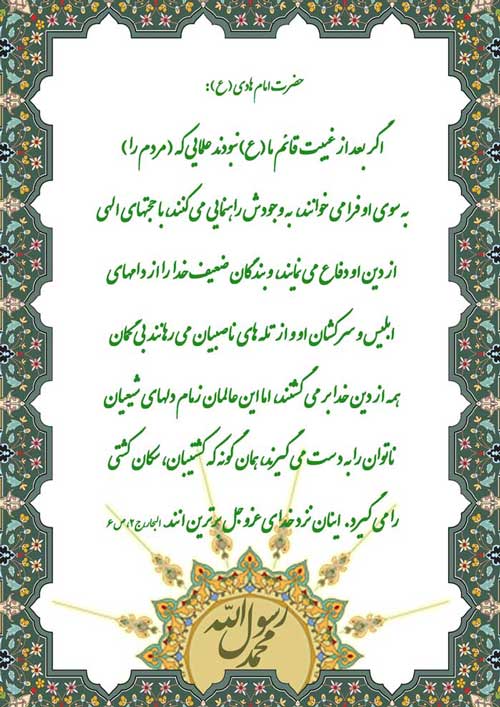 حضرت امام هادی (ع):
اگر بعد از غیبت قائم ما (ع) نبودند علمایی که (مردم را)
به سوی او فرا می خوانند، به وجودش راهنمایی می کنند، با حجتهای الهی
از دین او دفاع می نمایند، و بندگان ضعیف خدا را از دامهای
ابلیس و سرکشان او و از تله های ناصبیان می رهانند بی گمان
همه از دین خدا بر می گشتند، اما این عالمان زمام دلهای شیعیان
ناتوان را به دست می گیرند، همان گونه که کشتیبان، سکان کشتی
را می گیرد. اینان نزد خدای عزوجل برترین انند. البحار، ج ۲، ص ۶
محمد رسول الله